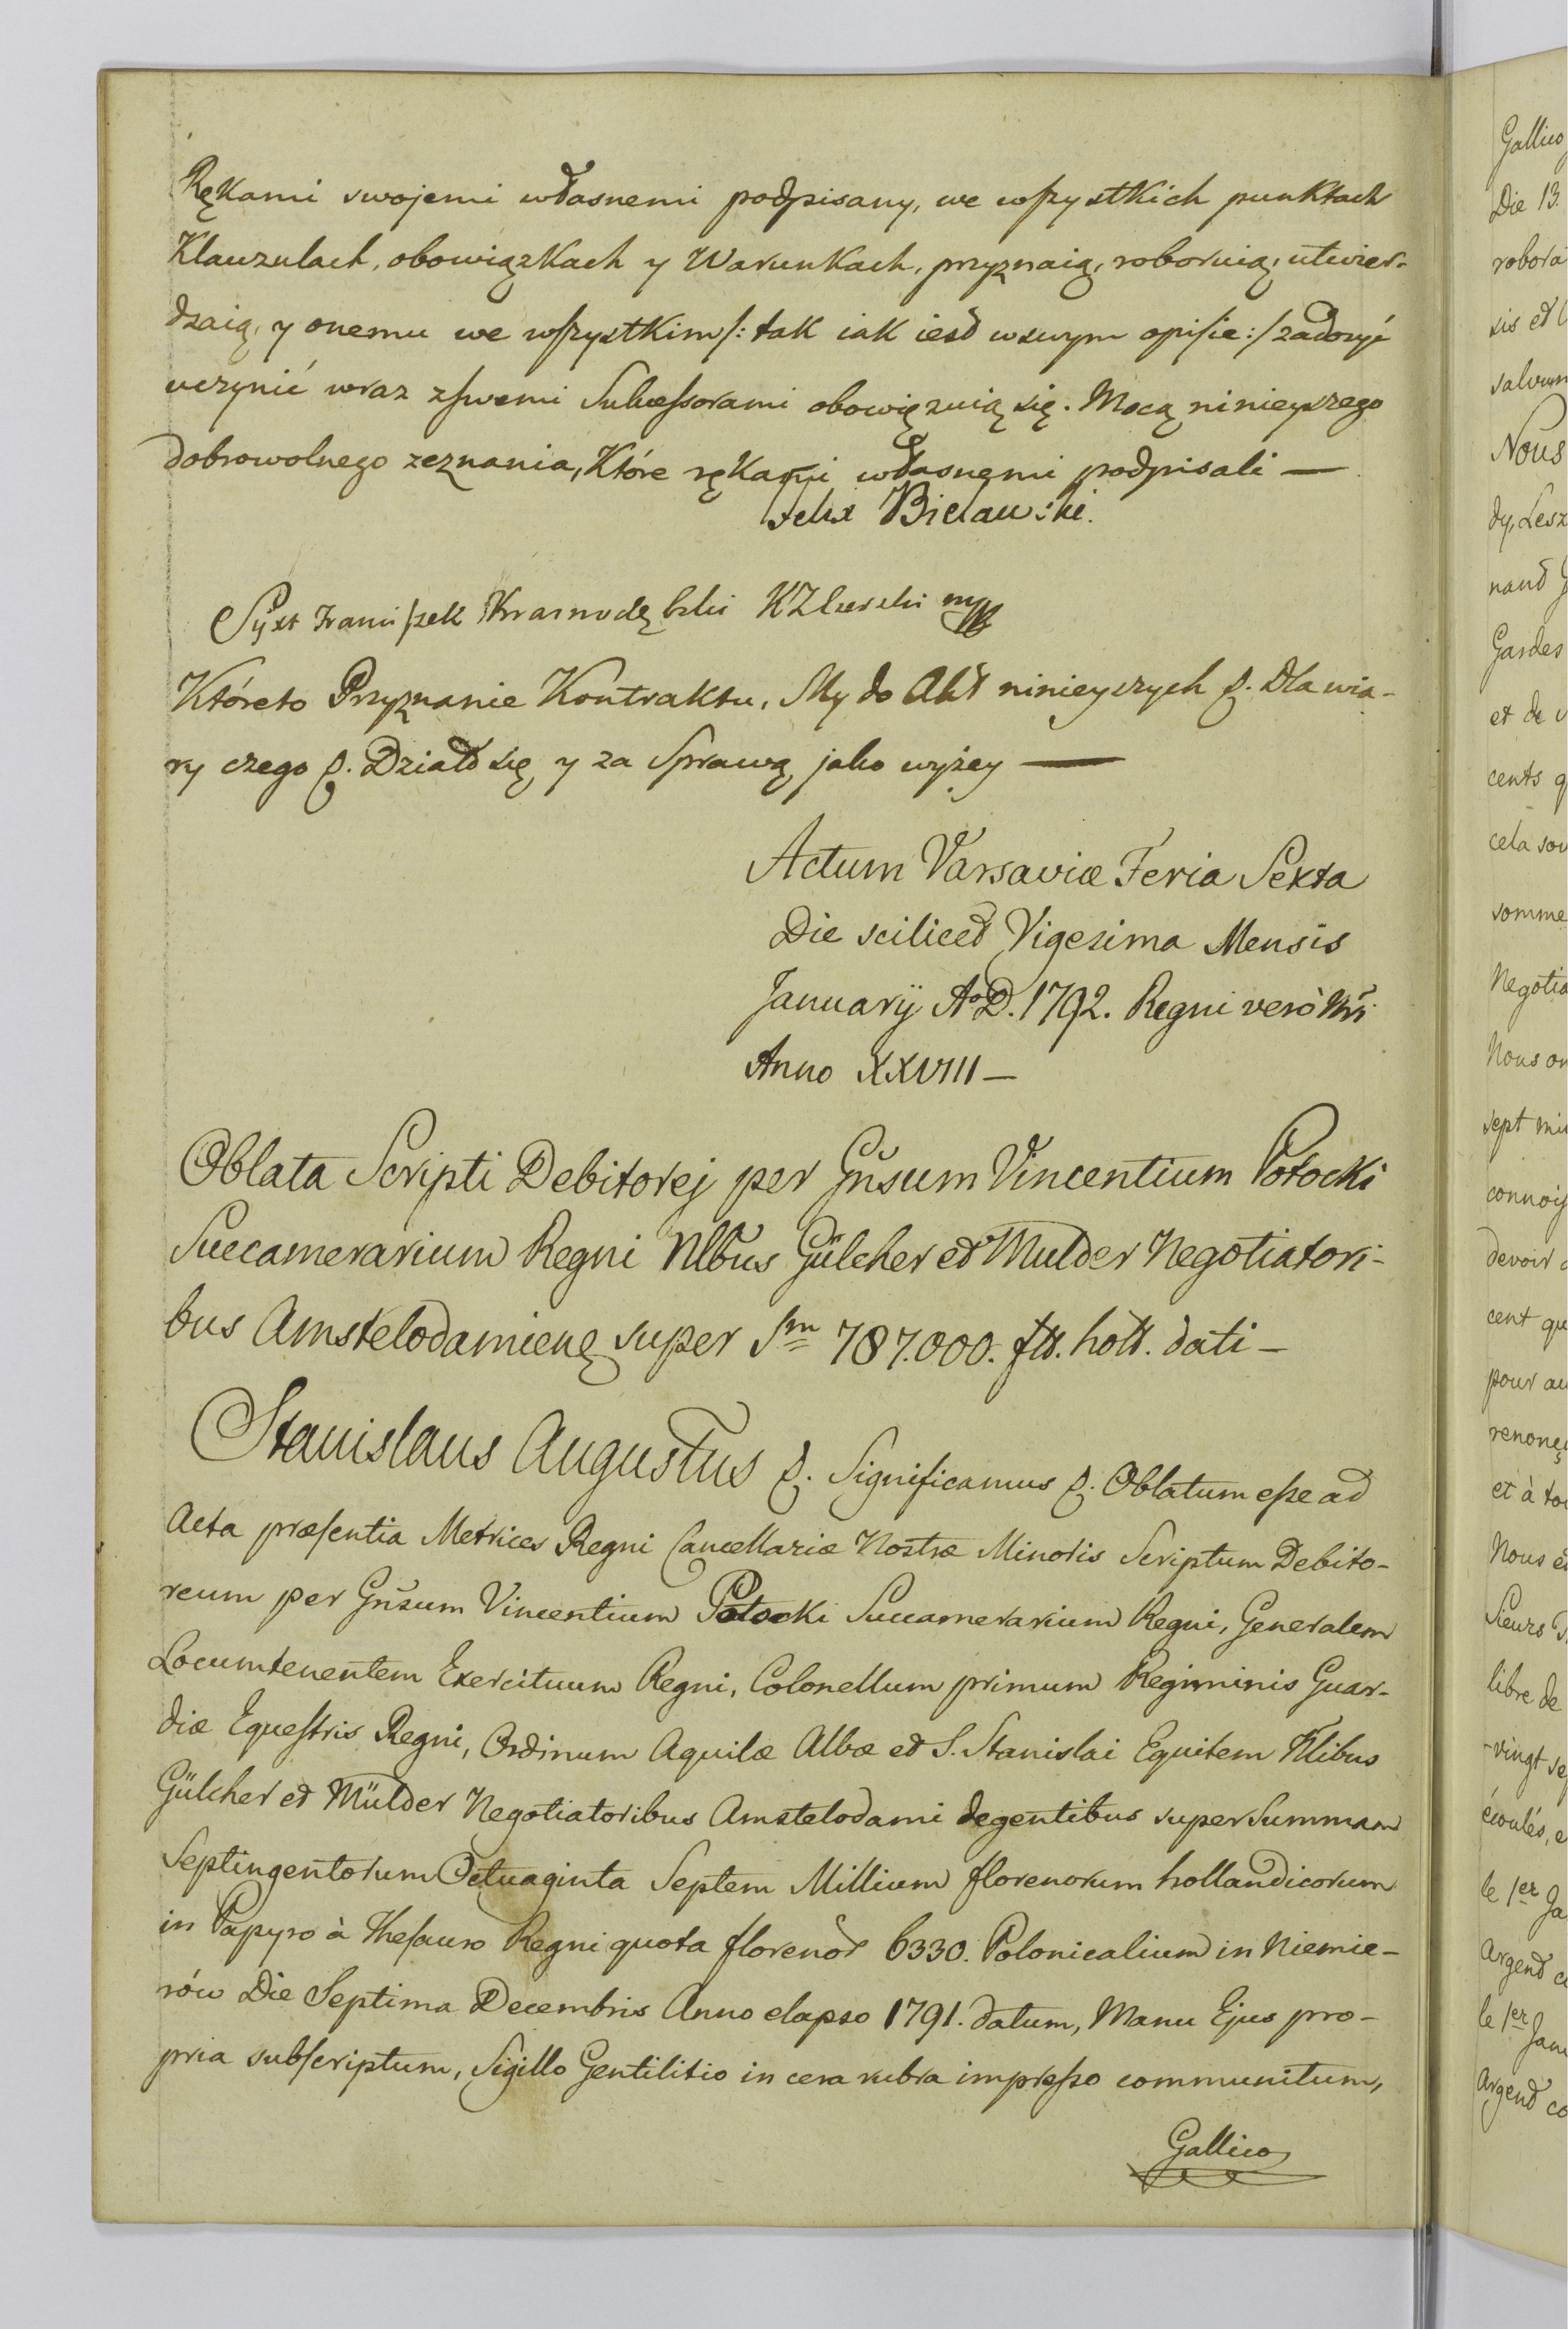 Rękami swojemi własnemi podpisany, we wszystkich punktach
Klauzulach, obowiązkach y Warunkach, przyznaią, roboruią, utwier-
dzaią, y onemu we wszystkim /: tak iak iest wswym opisie :/ zadosyć
uczynić wraz zswemi Sukcessorami obowięzuią się. Mocą ninieyszego
dobrowolnego zeznania, Które rękami własnemi podpisali —
Felix Bielawski.
Syxt Franciszek Krasnodębski KZLiwski mp
Któreto Przyznanie Kontraktu, My do Akt ninieyszych &. Dla wia-
ry czego &. Działo się y za Sprawą jako wyżey —
Actum Varsaviæ Feria Sexta
Die scilicet Vigesima Mensis
Januarij Aº D. 1792. Regni verò Nri
Anno XXVIII —
Oblata Scripti Debitorej per Gnsum Vincentium Potocki
Succamerarium Regni Nlbus Gülcher et Mulder Negotiatori-
bus Amstelodamieng super Sm 787.000. fll. holl. dati —
Stanislaus Augustus &. Significamus &. Oblatum esse ad
Acta præsentia Metrices Regni Cancellariæ Nostræ Minoris Scriptum Debito-
reum per Gnsum Vincentium Potocki Succamerarium Regni, Generalem
Locumtenentem Exercituum Regni, Colonellum primum Regiminis Guar-
diæ Equestris Regni, Ordinum Aquilæ Albæ et S. Stanislai Equitem Nlibus
Gülcher et Mülder Negotiatoribus Amstelodami degentibus super Summam
Septingentorum Octuaginta Septem Millium florenorum hollandicorum
in Papyro à Thesauro Regni quota florenor 6330. Polonicalium in Niemie-
rów Die Septima Decembris Anno elapso 1791. datum, Manu Ejus pro-
pria subscriptum, Sigillo Gentilitio in cera rubra impresso communitum,
Gallico
Gallico
Die 13.
robora
sis et
salvum
Nous
dy, Lesz
nand
Gardes
et de
cents
cela
somme
Negotia
Nous
sept
connoi
devoir
cent
pour
et à
Nous
Sieurs
libre de
-vingt
écoulés,
le 1er Ja
Argent
le 1er Jan
Argent